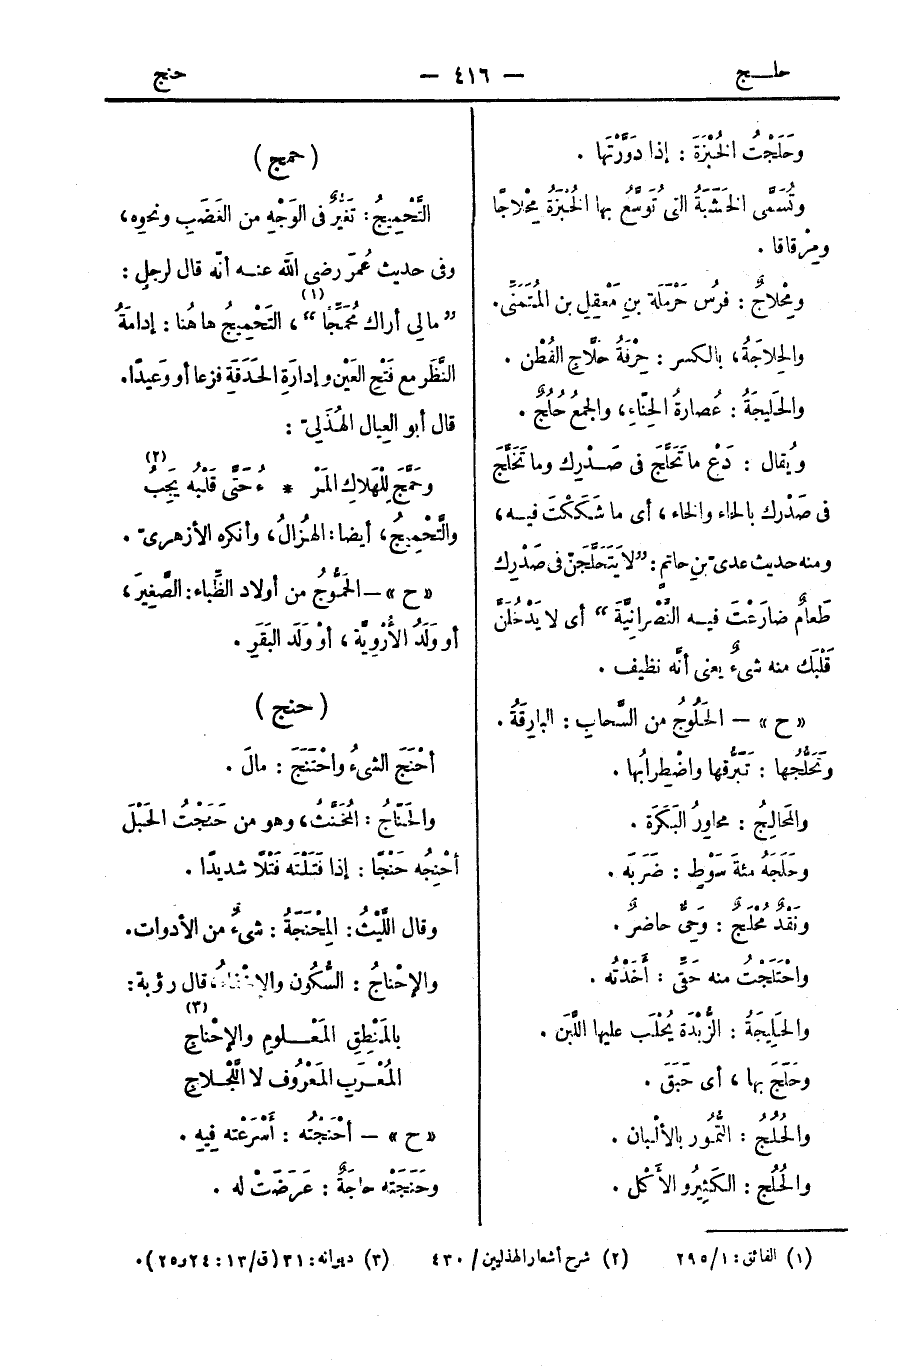 حلـــج
— ٤١٦ —
حنج
وحَلَجْتُ الخُبْزَةَ : إذا دَوَّرْتَها .
وتُسَمَّى الخَشَبَةُ التى تُوَسَّعُ بها الخُبْزَةُ مِحْلاجًا
ومِرْقاقا .
ومِحْلاجٌ : فرسُ حَرْمَلَة بنِ مَعْقِل بن المُتَمَنَّى.
والحِلاجَةُ، بالكسر : حِرْفَةُ حَلَّاجِ القُطْن .
والحَلِيجَةُ : عُصارةُ الحِنّاءِ، والجمعُ حُلُجٌ .
ويُقال : دَعْ ما تَحَلَّجَ فى صَـــدْرِك وما تَخَلَّجَ
فى صَدْرِك بالحاء والخاء ، أى ما شَكَكْتَ فيــه،
ومنه حديث عدىّ بنِ حاتمٍ : ”لا يَتَحَلَّجَنّ فى صَدْرِك
طَعامٌ ضارَعْتَ فيــه النَّصْرانيَّةَ“ أى لا يَدْخُلَنَّ
قَلْبَك منه شىءٌ يعنى أنَّه نظيف .
«ح» — الحَلُوجُ من السَّحابِ : البارِقَةُ .
وتَحَلُّجُها : تَبَرُّقُها واضْطِرابُها .
والمَحالِجُ : محاوِرُ البَكَرَة .
وحَلَجَهُ مئةَ سَوْطٍ : ضَرَبَه .
ونَقْدٌ مُحْلَجٌ : وَحِىٌّ حاضرٌ .
واحْتَلَجْتُ منه حَقِّى : أَخَذْتُه .
والحَلِيجَةُ : الزُّبْدَة يُحْلَب عليها اللَّبَن .
وحَلَّجَ بها ، أى حَبَقَ .
والحُلُجُ : التُّمُور بالأَلْبان .
والحُلُج : الكَثِيرُو الأَكْل .
( حمج )
التَّحْمِيجُ : تَغَيُّرٌ فى الوَجْهِ من الغَضَبِ ونحوِه،
وفى حديث عُمَرَ رضى الله عنــه أنّه قال لرجلٍ :
” مالى أراك مُحَمِّجًا “(١)، التَّحْمِيجُ ها هُنا : إدامَةُ
النَّظَر مع فَتْحِ العَيْن و إدارَةِ الحَدَقَةِ فزعا أو وَعِيدًا.
قال أبو العيال الهُذَلىّ :
وحَمَّجَ لِلْهَلاكِ المَرْ * ءُ حَتَّى قَلْبُه يَجِبُ(٢)
والتَّحْمِيجُ، أيضا : الهُزالُ، وأنكره الأزهرىّ .
«ح» — الحَمُّوجُ من أولاد الظِّباء : الصَّغِيرَ،
أو ولَدُ الأُرْوِيَّة ، أوْ وَلَد البَقَرِ .
( حنج )
أَحْنَجَ الشىءُ واحْتَنَجَ : مالَ .
والحَنّاجُ : المُخَنَّثُ، وهو من حَنَجْتُ الحَبْلَ
أحْنِجُه حَنْجًا : إذا فَتَلْتَه فَتْلًا شديدًا .
وقال اللَّيْثُ : المِحْنَجَةُ : شىءٌ من الأدوات.
والإحْناجُ : السُّكُون والإخْفاءُ، قال رؤبة :
بالمَنْطِقِ المَعْـــلومِ والإحْناجِ(٣)
المُعْـرَبِ المَعْرُوف لا اللَّجْــلاجِ
«ح» — أحْنَجْتُه : أَسْرَعْته فِيهِ .
وحَنَجَتْه حاجَةٌ : عَرَضَتْ له .
(١) الفائق : ١/ ٢٩٥ (٢) شرح أشعار الهذليين / ٤٣٠ (٣) ديوانه : ٣١ (ق/ ١٣ : ٢٤ و٢٥).